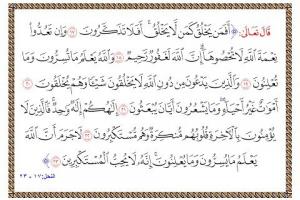 قال تعالى: ﴿ أَفَمَن يَخْلُقُ كَمَن لَّا يَخْلُقُ ۗ أَفَلَا تَذَكَّرُونَ ۝١٧ وَإِن تَعُدُّوا
نِعْمَةَ اللَّهِ لَا تُحْصُوهَا ۗ إِنَّ اللَّهَ لَغَفُورٌ رَّحِيمٌ ۝١٨ وَاللَّهُ يَعْلَمُ مَا تُسِرُّونَ وَمَا
تُعْلِنُونَ ۝١٩ وَالَّذِينَ يَدْعُونَ مِن دُونِ اللَّهِ لَا يَخْلُقُونَ شَيْئًا وَهُمْ يُخْلَقُونَ ۝٢٠
أَمْوَاتٌ غَيْرُ أَحْيَاءٍ ۖ وَمَا يَشْعُرُونَ أَيَّانَ يُبْعَثُونَ ۝٢١ إِلَٰهُكُمْ إِلَٰهٌ وَاحِدٌ ۚ فَالَّذِينَ لَا
يُؤْمِنُونَ بِالْآخِرَةِ قُلُوبُهُم مُّنكِرَةٌ وَهُم مُّسْتَكْبِرُونَ ۝٢٢ لَا جَرَمَ أَنَّ اللَّهَ
يَعْلَمُ مَا يُسِرُّونَ وَمَا يُعْلِنُونَ ۚ إِنَّهُ لَا يُحِبُّ الْمُسْتَكْبِرِينَ ۝٢٣ ﴾
النحل: ١٧ - ٢٣